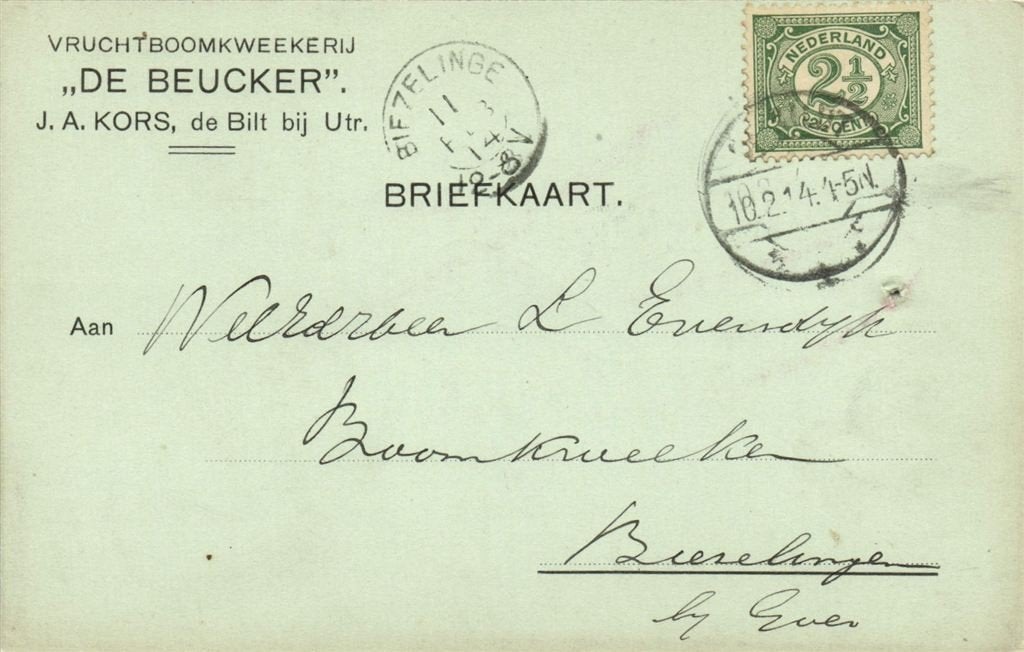 VRUCHTBOOMKWEEKERIJ
„DE BEUCKER".
J. A. KORS, de Bilt bij Utr.
BIEZELINGE
NEDERLAND
2½
2½ CENT
10.2.14.4-5N.
BRIEFKAART.
Aan WelEdHeer L Eversdyk
Boomkweeker
Bieselingen
by Goes